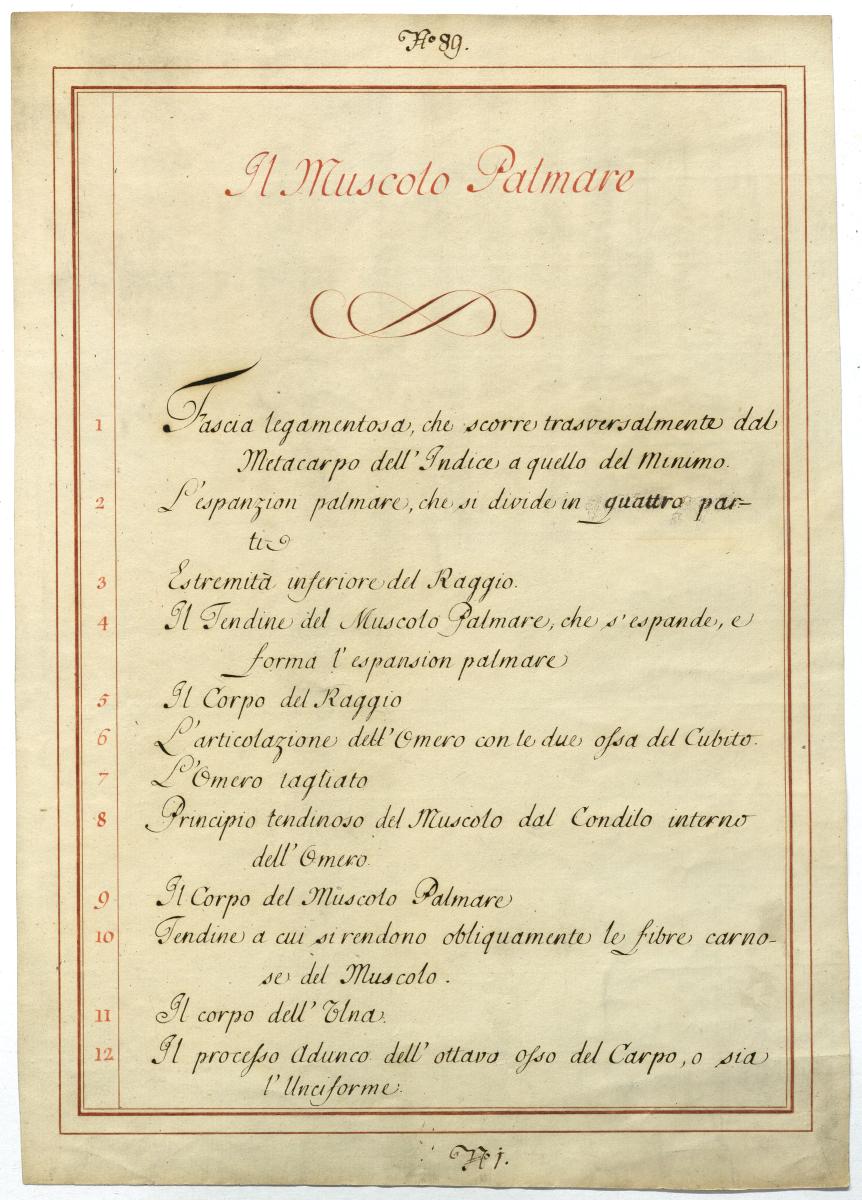 No 89.
Il Muscolo Palmare
1 Fascia legamentosa, che scorre trasversalmente dal
Metacarpo dell' Indice a quello del Minimo.
2 L'espanzion palmare, che si divide in quattro par-
ti
3 Estremità inferiore del Raggio.
4 Il Tendine del Muscolo Palmare, che s'espande, e
forma l'espansion palmare
5 Il Corpo del Raggio
6 L'articolazione dell'Omero con le due oſsa del Cubito.
7 L'Omero tagliato
8 Principio tendinoso del Muscolo dal Condilo interno
dell'Omero.
9 Il Corpo del Muscolo Palmare
10 Tendine a cui si rendono obliquamente le fibre carno-
se del Muscolo.
11 Il corpo dell' Ulna.
12 Il proceſso Adunco dell' ottavo oſso del Carpo, o sia
l'Unciforme.
N 1.